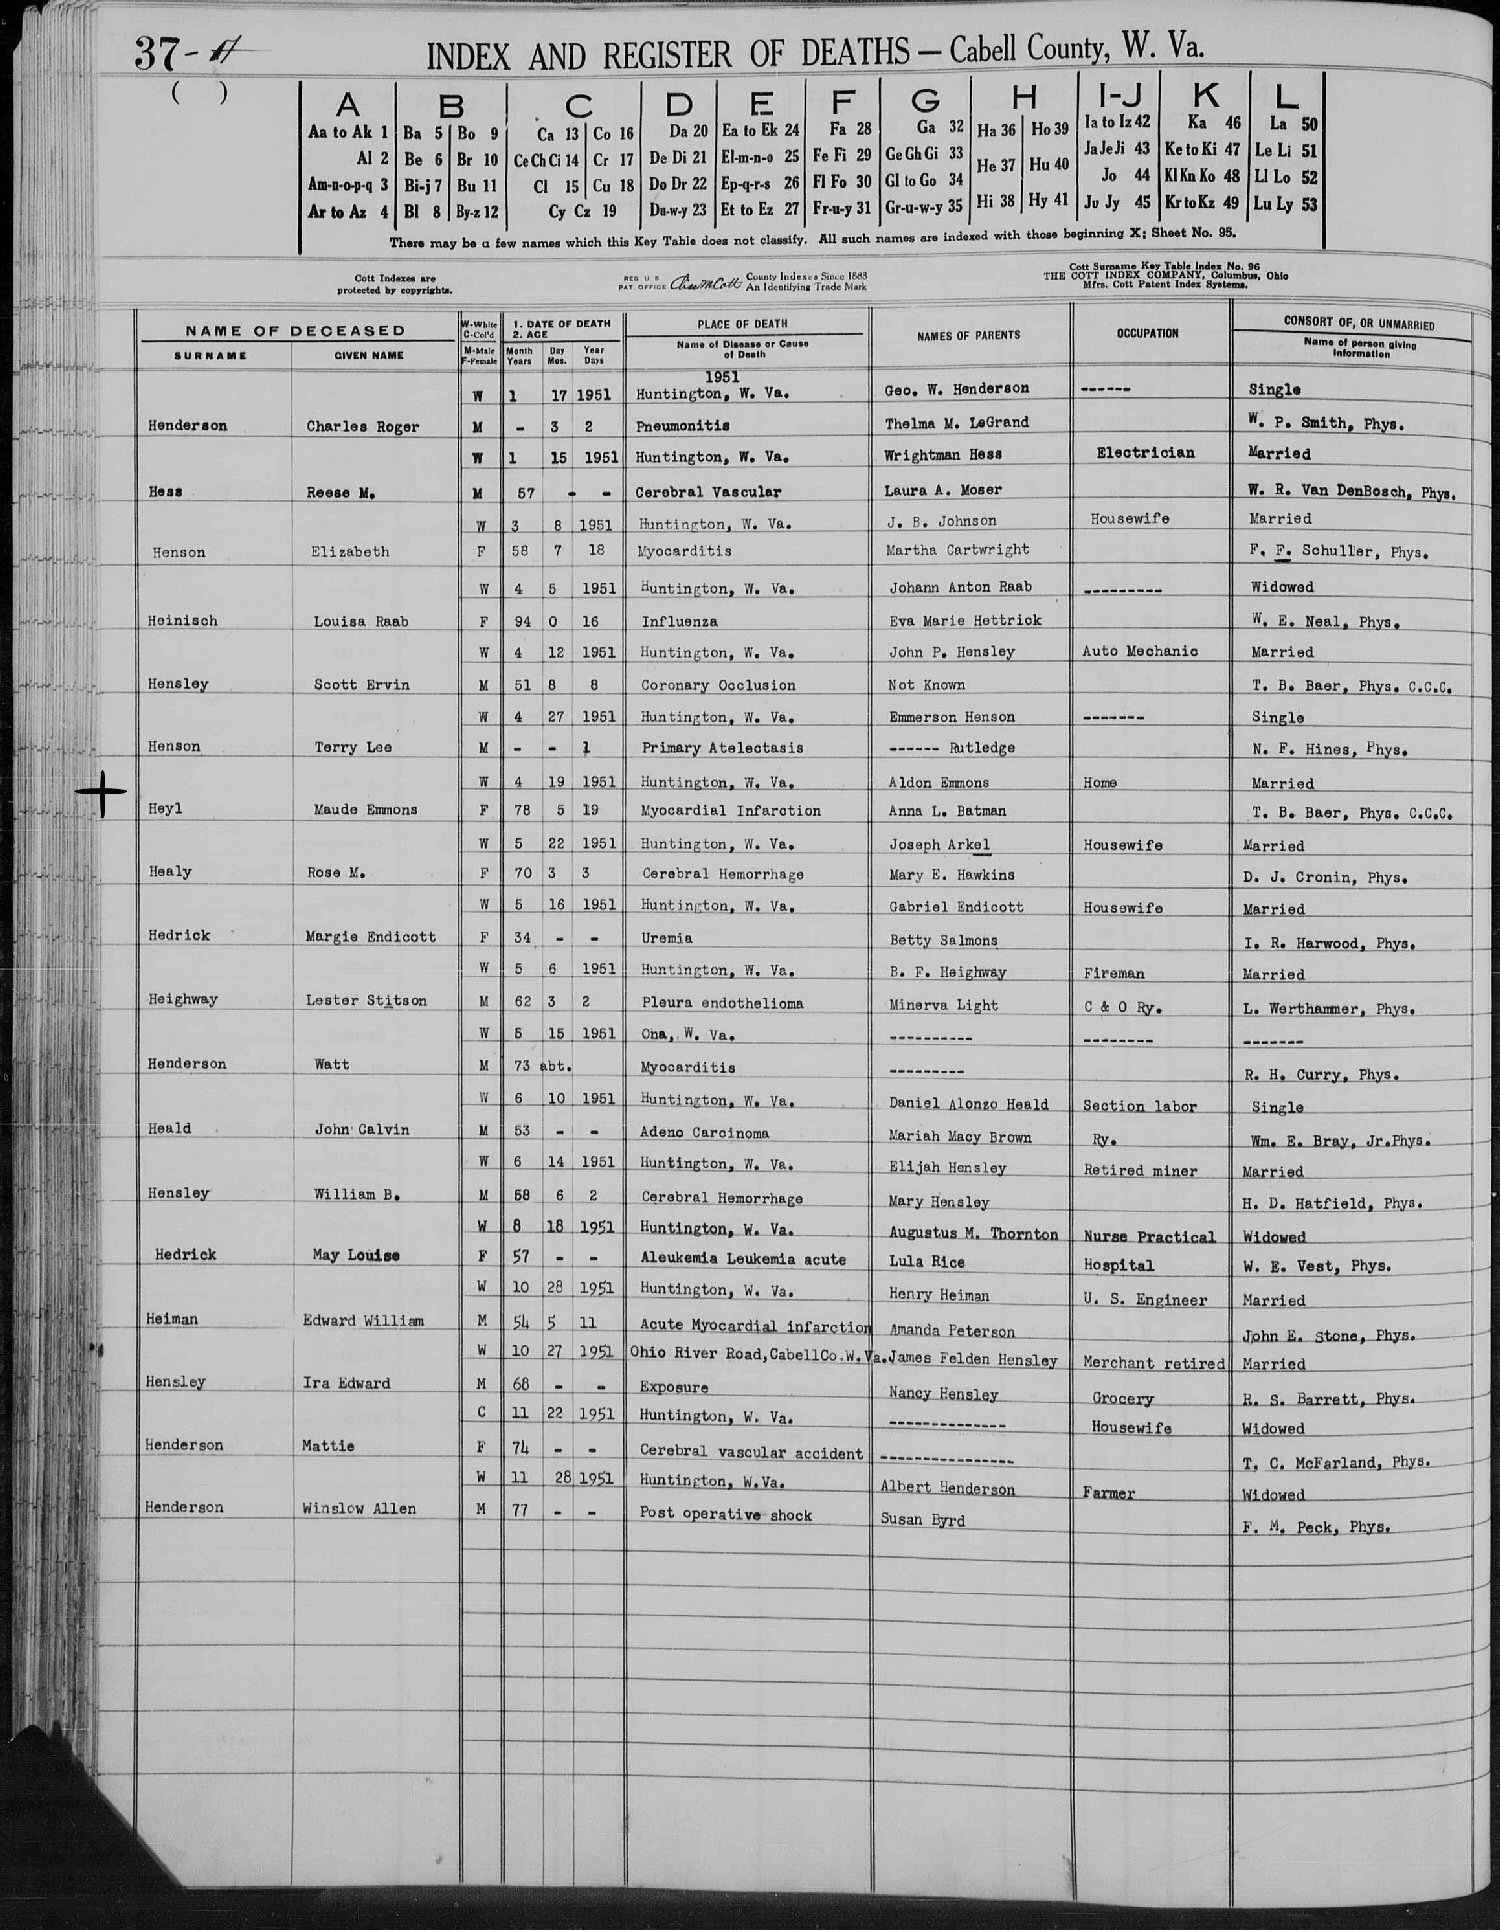 37-A
INDEX AND REGISTER OF DEATHS — Cabell County, W. Va.
( )
A B C D E F G H I-J K L
Aa to Ak 1 Ba 5 Bo 9 Ca 13 Co 16 Da 20 Ea to Ek 24 Fa 28 Ga 32 Ha 36 Ho 39 Ia to Iz 42 Ka 46 La 50
Al 2 Be 6 Br 10 Ce Ch Ci 14 Cr 17 De Di 21 El-m-n-o 25 Fe Fi 29 Ge Gh Gi 33 He 37 Hu 40 Ja Je Ji 43 Ke to Ki 47 Le Li 51
Am-n-o-p-q 3 Bi-j 7 Bu 11 Cl 15 Cu 18 Do Dr 22 Ep-q-r-s 26 Fl Fo 30 Gl to Go 34 Jo 44 Kl Kn Ko 48 Ll Lo 52
Ar to Az 4 Bl 8 By-z 12 Cy Cz 19 Du-w-y 23 Et to Ez 27 Fr-u-y 31 Gr-u-w-y 35 Hi 38 Hy 41 Ju Jy 45 Kr to Kz 49 Lu Ly 53
There may be a few names which this Key Table does not classify. All such names are indexed with those beginning X; Sheet No. 95.
Cott Indexes are
protected by copyrights.
REG. U. S.
PAT. OFFICE
County Indexes Since 1883
An Identifying Trade Mark
Cott Surname Key Table Index No. 96
THE COTT INDEX COMPANY, Columbus, Ohio
Mfrs. Cott Patent Index Systems.
NAME OF DECEASED W-White C-Col'd 1. DATE OF DEATH 2. AGE PLACE OF DEATH NAMES OF PARENTS OCCUPATION CONSORT OF, OR UNMARRIED
SURNAME GIVEN NAME M-Male F-Female Month Years Day Mos. Year Days Name of Disease or Cause of Death Name of person giving information
1951
W 1 17 1951 Huntington, W. Va. Geo. W. Henderson ------ Single
Henderson Charles Roger M - 3 2 Pneumonitis Thelma M. LeGrand W. P. Smith, Phys.
W 1 15 1951 Huntington, W. Va. Wrightman Hess Electrician Married
Hess Reese M. M 57 - - Cerebral Vascular Laura A. Moser W. R. Van DenBosch, Phys.
W 3 8 1951 Huntington, W. Va. J. B. Johnson Housewife Married
Henson Elizabeth F 58 7 18 Myocarditis Martha Cartwright F. F. Schuller, Phys.
W 4 5 1951 Huntington, W. Va. Johann Anton Raab --------- Widowed
Heinisch Louisa Raab F 94 0 16 Influenza Eva Marie Hettrick W. E. Neal, Phys.
W 4 12 1951 Huntington, W. Va. John P. Hensley Auto Mechanic Married
Hensley Scott Ervin M 51 8 8 Coronary Occlusion Not Known T. B. Baer, Phys. C.C.C.
W 4 27 1951 Huntington, W. Va. Emmerson Henson ------- Single
Henson Terry Lee M - - 1 Primary Atelectasis ------ Rutledge N. F. Hines, Phys.
W 4 19 1951 Huntington, W. Va. Aldon Emmons Home Married
Heyl Maude Emmons F 78 5 19 Myocardial Infarction Anna L. Batman T. B. Baer, Phys. C.C.C.
W 5 22 1951 Huntington, W. Va. Joseph Arkel Housewife Married
Healy Rose M. F 70 3 3 Cerebral Hemorrhage Mary E. Hawkins D. J. Cronin, Phys.
W 5 16 1951 Huntington, W. Va. Gabriel Endicott Housewife Married
Hedrick Margie Endicott F 34 - - Uremia Betty Salmons I. R. Harwood, Phys.
W 5 6 1951 Huntington, W. Va. B. F. Heighway Fireman Married
Heighway Lester Stitson M 62 3 2 Pleura endothelioma Minerva Light C & O Ry. L. Werthammer, Phys.
W 5 15 1951 Ona, W. Va. ---------- -------- -------
Henderson Watt M 73 abt. Myocarditis --------- R. H. Curry, Phys.
W 6 10 1951 Huntington, W. Va. Daniel Alonzo Heald Section labor Single
Heald John Calvin M 53 - - Adeno Carcinoma Mariah Macy Brown Ry. Wm. E. Bray, Jr.Phys.
W 6 14 1951 Huntington, W. Va. Elijah Hensley Retired miner Married
Hensley William B. M 58 6 2 Cerebral Hemorrhage Mary Hensley H. D. Hatfield, Phys.
W 8 18 1951 Huntington, W. Va. Augustus M. Thornton Nurse Practical Widowed
Hedrick May Louise F 57 - - Aleukemia Leukemia acute Lula Rice Hospital W. E. Vest, Phys.
W 10 28 1951 Huntington, W. Va. Henry Heiman U. S. Engineer Married
Heiman Edward William M 54 5 11 Acute Myocardial infarction Amanda Peterson John E. Stone, Phys.
W 10 27 1951 Ohio River Road,CabellCo.W.Va. James Felden Hensley Merchant retired Married
Hensley Ira Edward M 68 - - Exposure Nancy Hensley Grocery R. S. Barrett, Phys.
C 11 22 1951 Huntington, W. Va. -------------- Housewife Widowed
Henderson Mattie F 74 - - Cerebral vascular accident ---------------- T. C. McFarland, Phys.
W 11 28 1951 Huntington, W.Va. Albert Henderson Farmer Widowed
Henderson Winslow Allen M 77 - - Post operative shock Susan Byrd F. M. Peck, Phys.